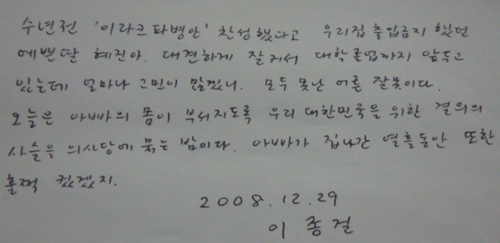 수년전 '이라크 파병안' 찬성했다고 우리집 출입금지 했던
예쁜딸 혜진아. 대견하게 잘커서 대학졸업까지 앞두고
있는데 얼마나 고민이 많겠니. 모두 못난 어른 잘못이다.
오늘은 아빠의 몸이 부서지도록 우리 대한민국을 위한 결의의
사슬을 의사당에 묶는 밤이다. 아빠가 집나간 열흘동안 또한
훌쩍 컸겠지.
2008.12.29
이종걸